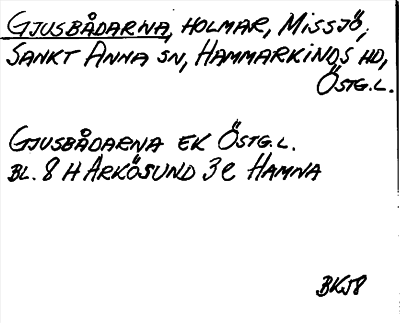 GJUSBÅDARNA, HOLMAR, MISSJÖ,
SANKT ANNA SN, HAMMARKINDS HD,
ÖSTG.L.
GJUSBÅDARNA EK ÖSTG.L.
BL. 8 H ARKÖSUND 3 e HAMNA
BKJ8